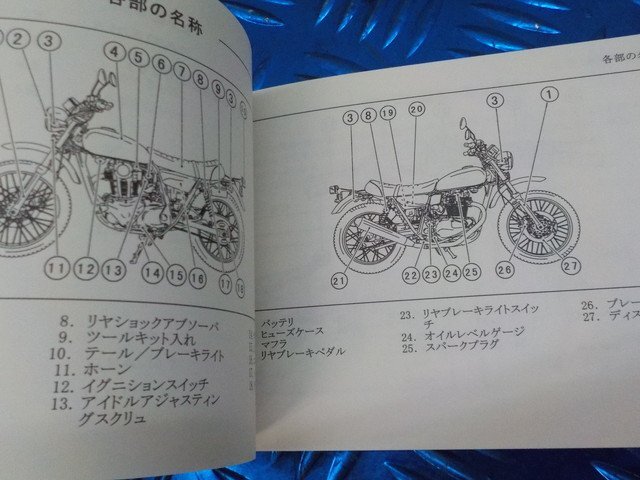 各部の名称
2 3 4 5 6 7 8 9 3
11 12 13 14 15 16 17 18
8. リヤショックアブソーバ
9. ツールキット入れ
10. テール／ブレーキライト
11. ホーン
12. イグニションスイッチ
13. アイドルアジャスティン
グスクリュ
各部の名
3 8 19 20 3 1
21 22 23 24 25 26 27
バッテリ
ヒューズケース
マフラ
リヤブレーキペダル
23. リヤブレーキライトスイッ
チ
24. オイルレベルゲージ
25. スパークプラグ
26. ブレー
27. ディス